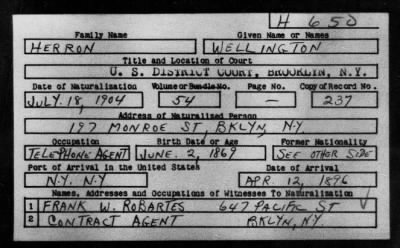 H 650
Family Name Given Name or Names
HERRON WELLINGTON
Title and Location of Court
U. S. DISTRICT COURT, BROOKLYN, N.Y.
Date of Naturalization Volume or Bundle No. Page No. Copy of Record No.
JULY. 18, 1904 54 — 237
Address of Naturalized Person
197 MONROE ST, BKLYN, N.Y.
Occupation Birth Date or Age Former Nationality
TELEPHONE AGENT JUNE. 2, 1869 SEE OTHER SIDE
Port of Arrival in the United States Date of Arrival
N.Y. N.Y APR. 12, 1896
Names, Addresses and Occupations of Witnesses To Naturalization
1 FRANK W. ROBARTES 647 PACIFIC ST
2 CONTRACT AGENT BKLYN, NY